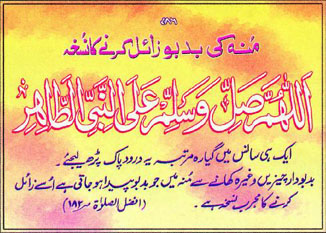 ۷۸۶
مُنہ کی بدبو زائل کرنے کا نُسخہ
اَللّٰھُمَّ صَلِّ وَسَلِّمْ عَلَی النَّبِیِّ الطَّاھِرِ
ایک ہی سانس میں گیارہ مرتبہ یہ درود پاک پڑھ لیجئے۔
بدبودار چیزیں وغیرہ کھانے سے مُنہ میں جو بدبو پیدا ہوجاتی ہے اُسے زائل
کرنے کا مجرب نسخہ ہے۔ (افضل الصلوٰۃ ص ۱۸۲)